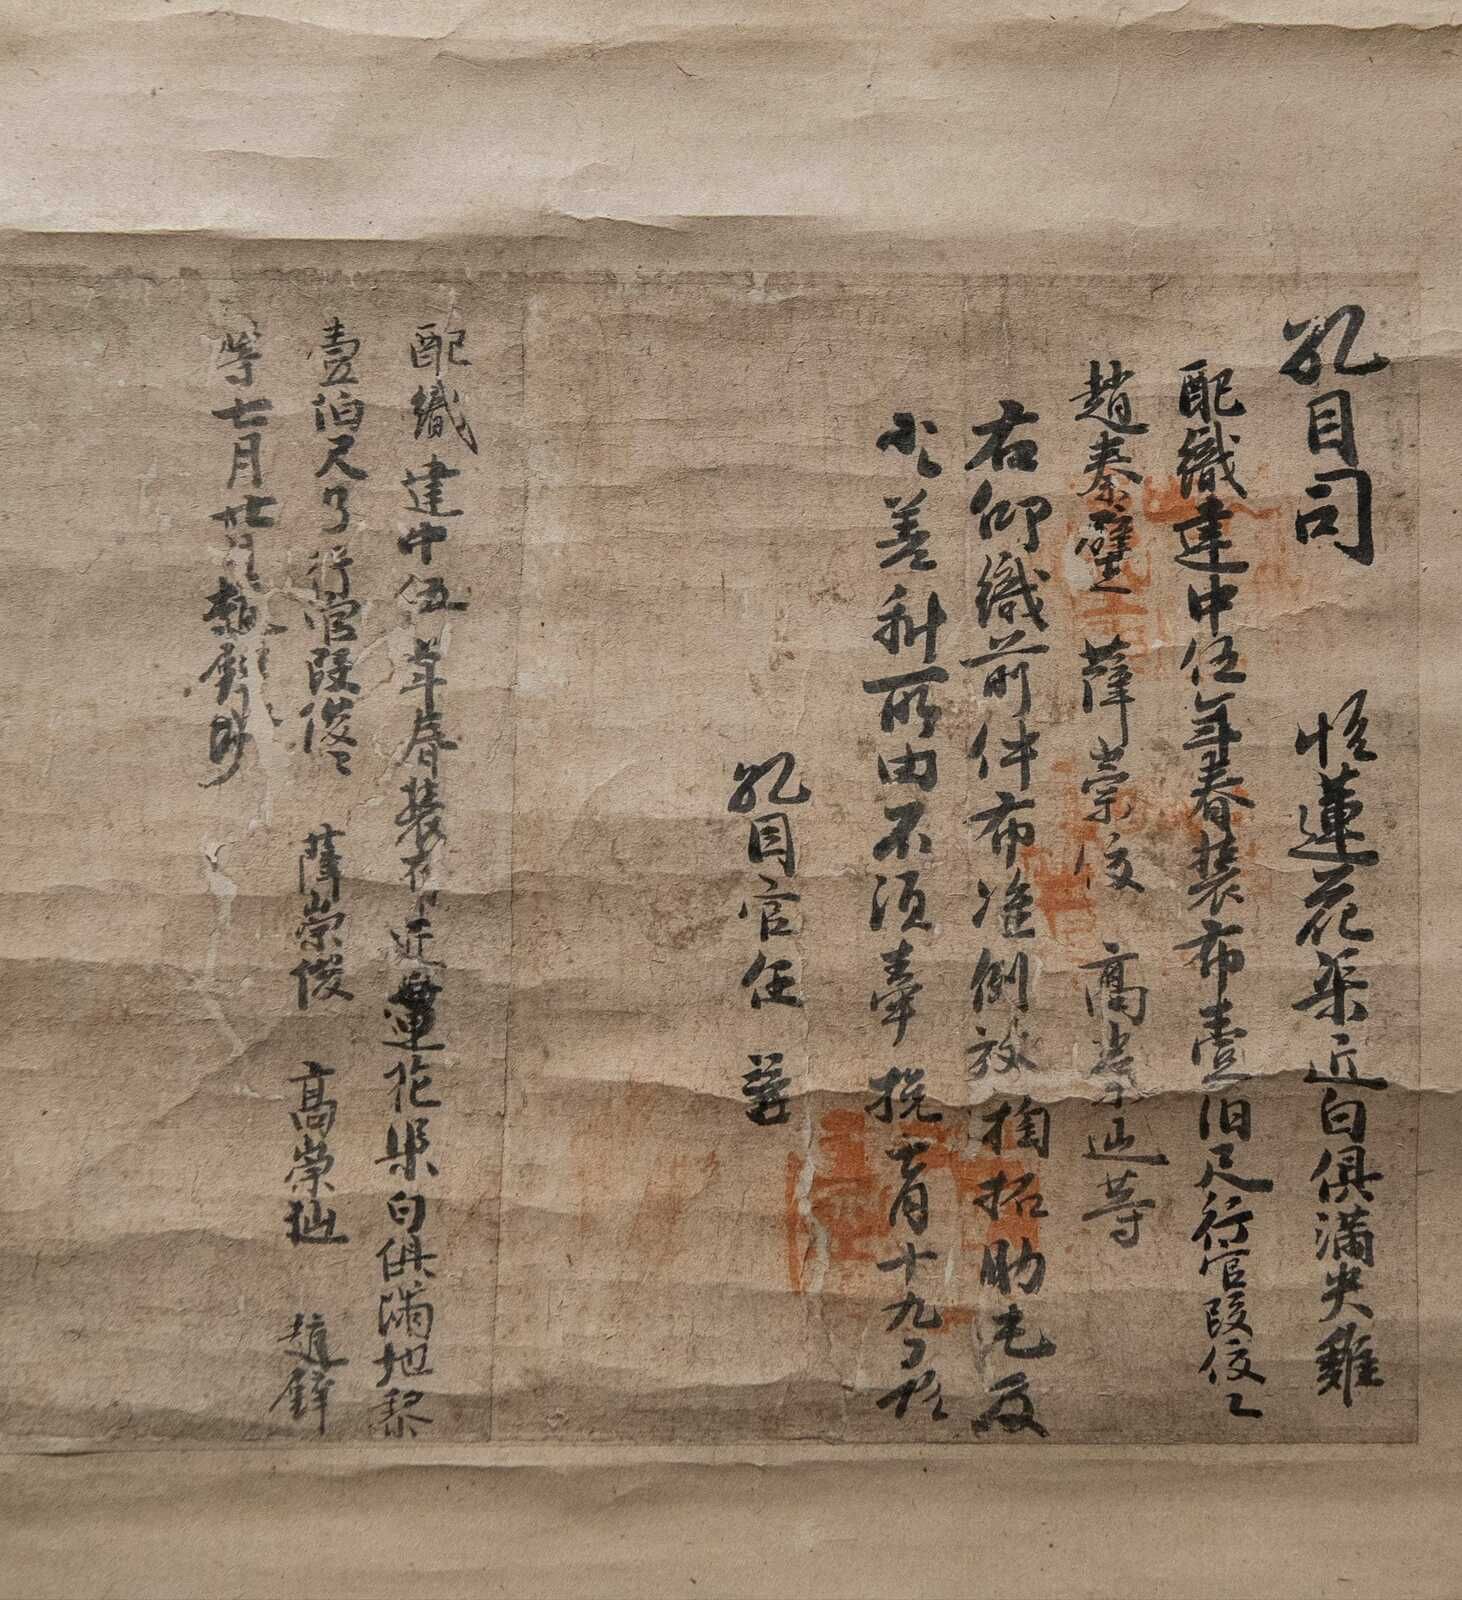 孔目司　　帖蓮花渠近白俱滿失雞
配織建中伍年春裝布壹伯尺行官段俊俊
趙秦璧　薛崇俊　高崇迪等
右仰織前件布准例放掏拓助屯及
小小差科所由不須牽挽七月十九日帖
孔目官任　善
配織建中伍年春裝布近蓮花渠白俱滿地黎
壹伯尺了行官段俊俊　薛崇俊　高崇迪　趙
等七月廿日趙